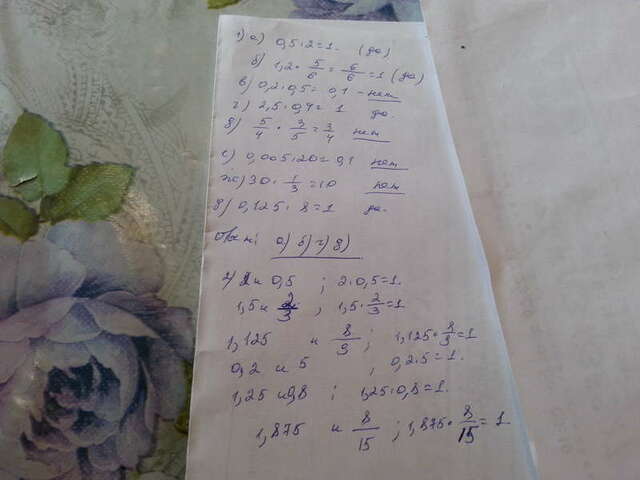 1) а) 0,5·2=1. (да)
б) 1,2·5/6=6/6=1 (да)
в) 0,2·0,5=0,1 - нет
г) 2,5·0,4=1 да.
д) 5/4·3/5=3/4 нет
е) 0,005·20=0,1 нет
ж) 30·1/3=10 нет
з) 0,125·8=1 да.
а) б) г) з)
2) 2 и 0,5 ; 2·0,5=1.
1,5 и 2/3 ; 1,5·2/3=1
1,125 и 8/9 ; 1,125·8/9=1
0,2 и 5 ; 0,2·5=1.
1,25 и 0,8 ; 1,25·0,8=1.
1,875 и 8/15 ; 1,875·8/15=1